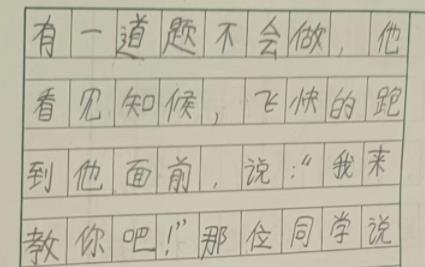 有一道题不会做，他
看见知候，飞快的跑
到他面前，说：“我来
教你吧！”那位同学说